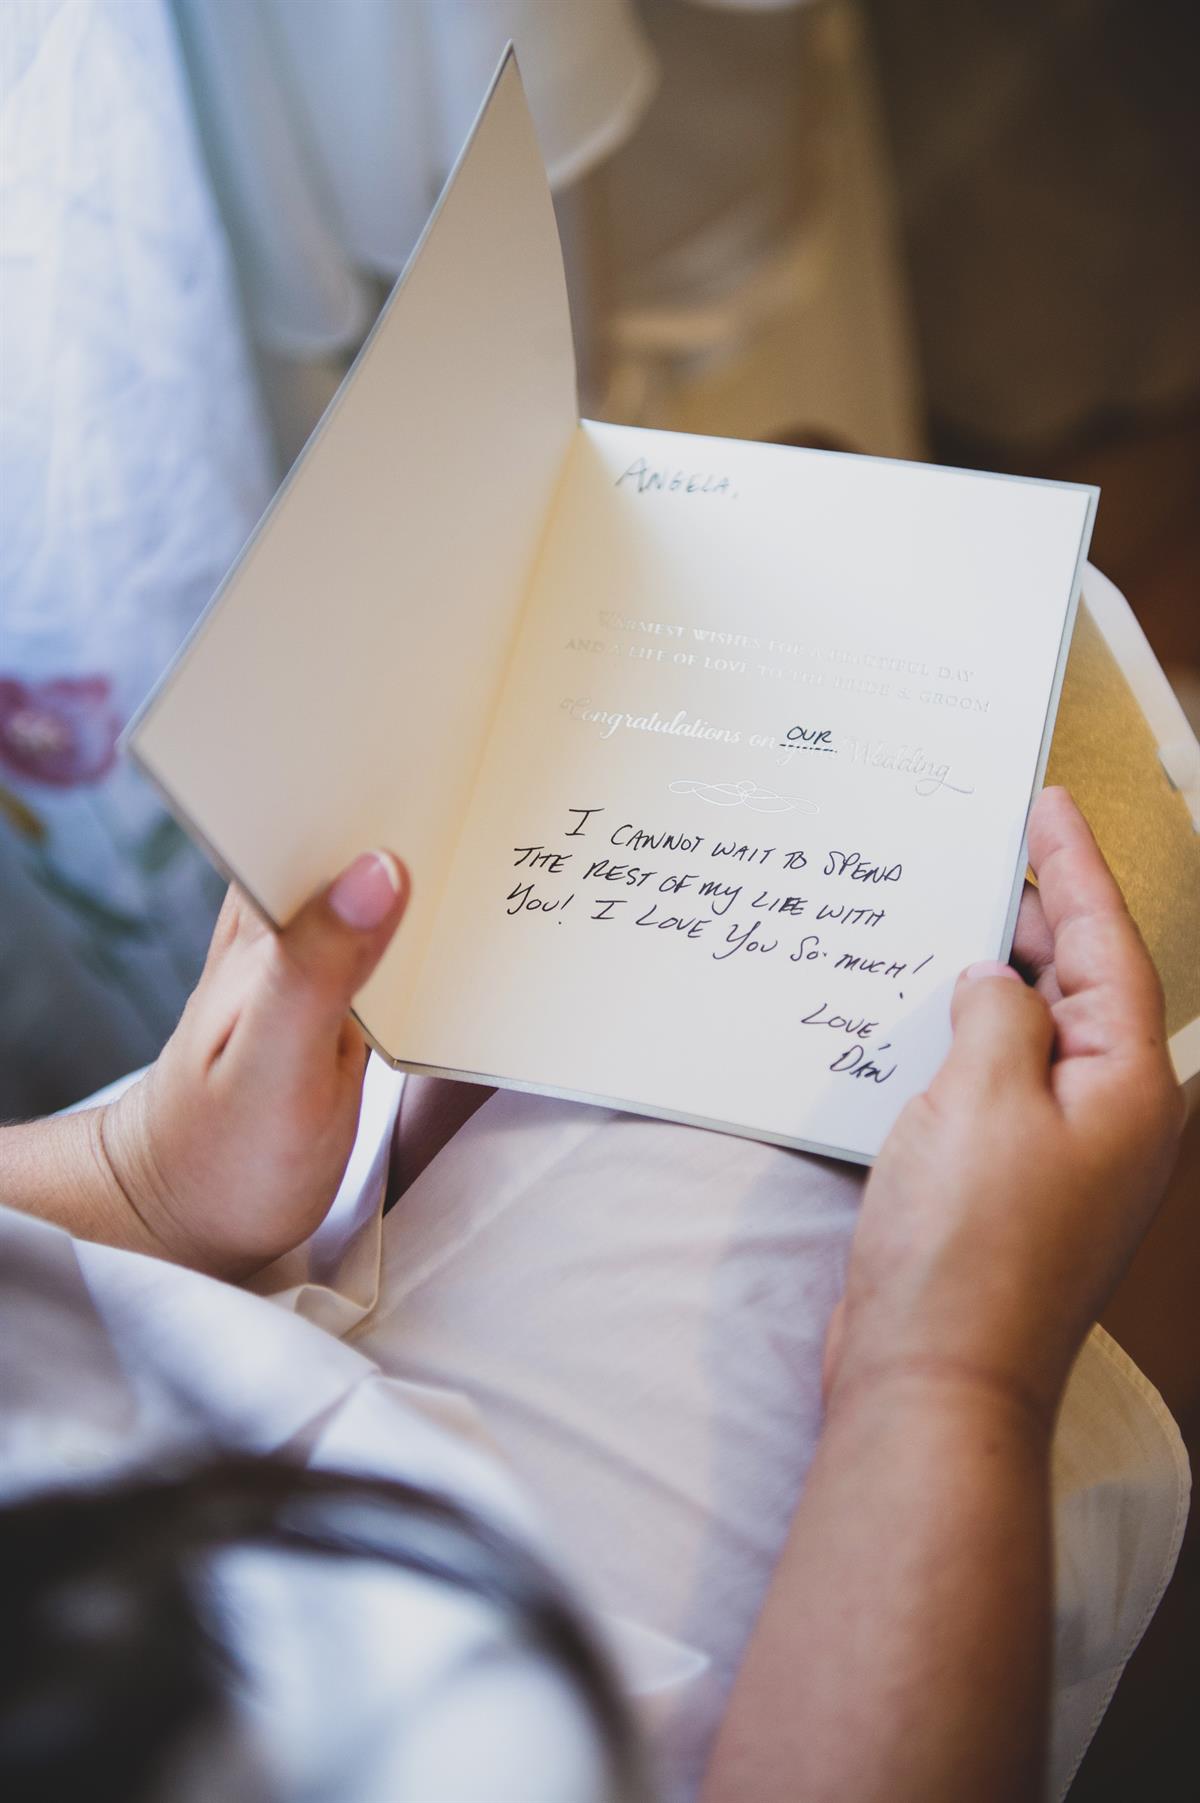 ANGELA,
WARMEST WISHES FOR A BEAUTIFUL DAY
AND A LIFE OF LOVE TO THE BRIDE & GROOM
OUR
Congratulations on your Wedding
I CANNOT WAIT TO SPEND
THE REST OF MY LIFE WITH
YOU! I LOVE YOU SO MUCH!
LOVE,
DAN